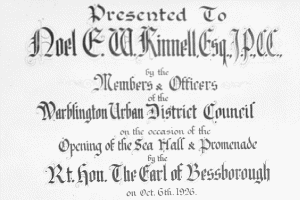 Presented To
Noel E. W. Kinnell, Esq., J.P., C.C.,
by the
Members & Officers
of the
Warblington Urban District Council
on the occasion of the
Opening of the Sea Wall & Promenade
by the
Rt. Hon. The Earl of Bessborough
on Oct. 6th. 1926.